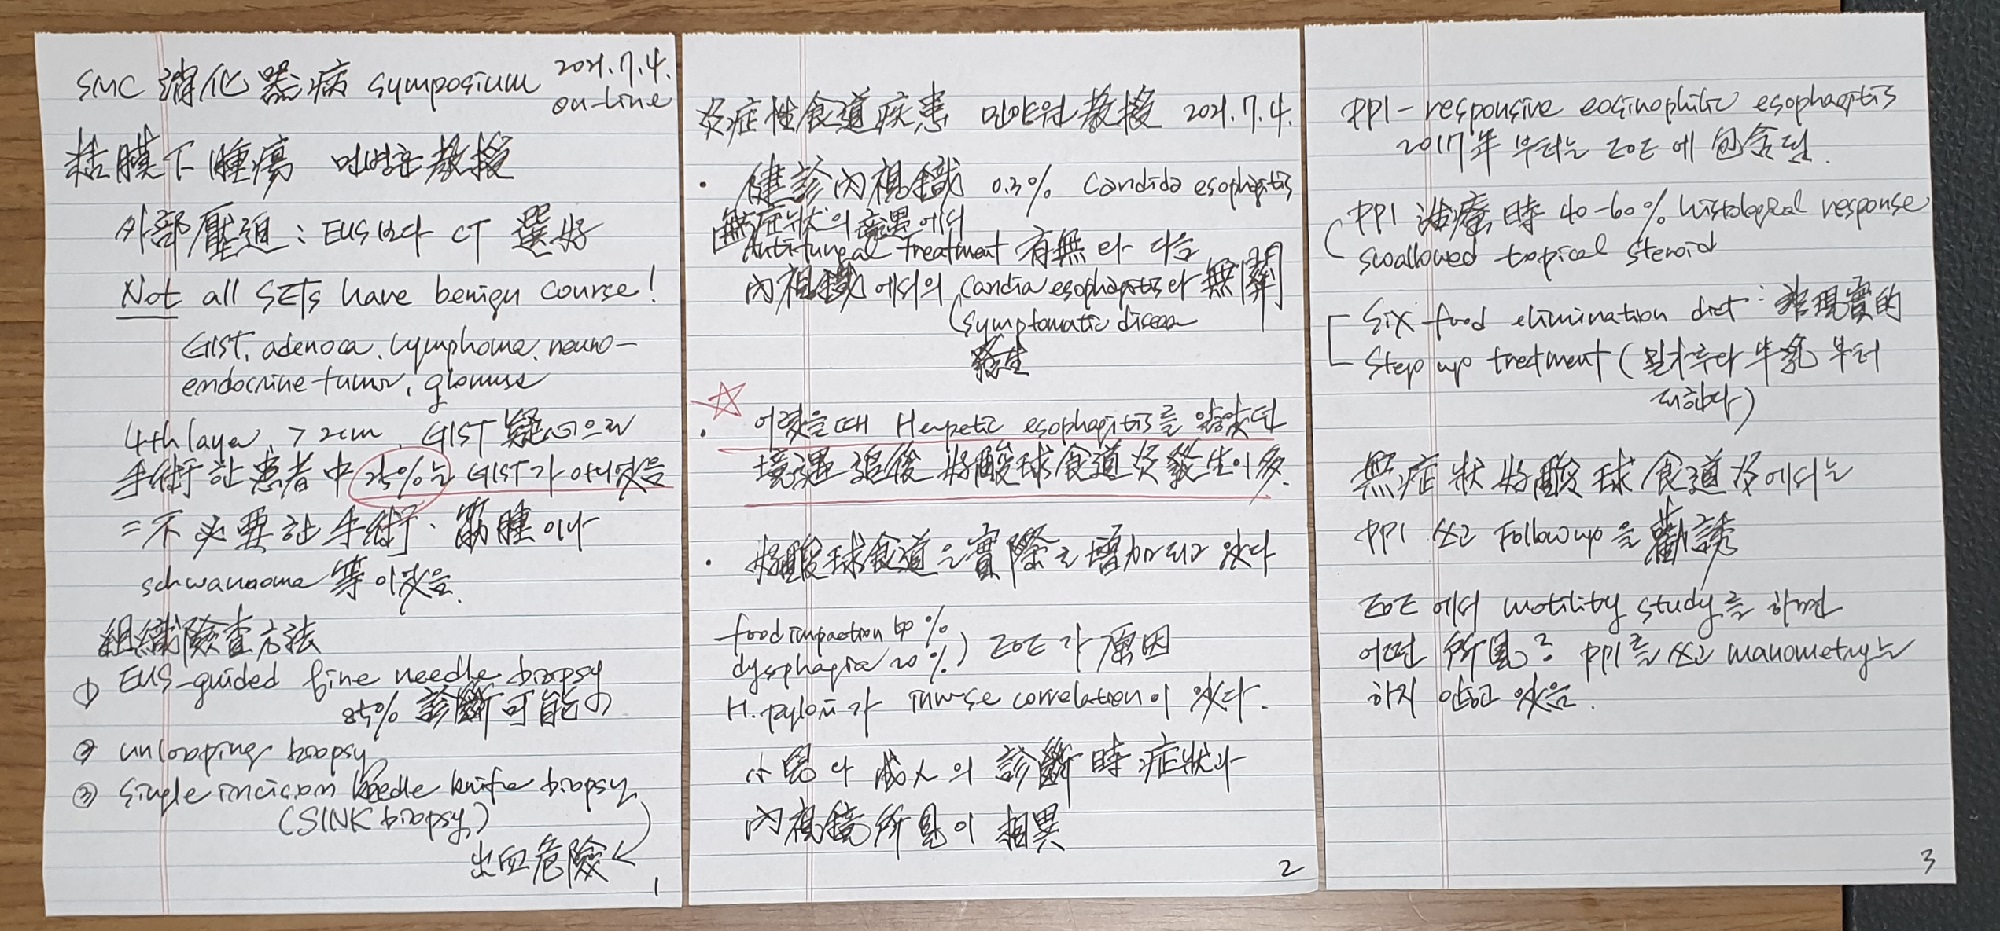 SMC 消化器病 symposium 2021.7.4.
on-line
粘膜下腫瘍 민병훈 教授
外部壓迫 : EUS보다 CT 選好
Not all SETs have benign course!
GIST, adenoca, lymphoma, neuro-
endocrine tumor, glomus
4th layer, > 2cm, GIST 疑心으로
手術한 患者中 25%는 GIST가 아니었음
= 不必要한 手術. 筋腫이나
schwannoma 等이었음.
組織險查方法
① EUS-guided fine needle biopsy
85% 診斷可能
② unroofing biopsy
③ Single incision needle knife biopsy
(SINK biopsy)
出血危險
1
炎症性食道疾患 민양원 教授 2021.7.4.
· 健診內視鏡 0.3% Candida esophagitis
無症狀의 境遇에서
Antifungal treatment 有無와 다음
內視鏡에서의 Candia esophagitis와 無關
symptomatic disease
發生
☆
· 어렸을때 Herpetic esophagitis를 앓았던
境遇 追後 好酸球食道炎 發生이 多.
· 好酸球食道은 實際로 增加되고 있다
food impaction 50%
dysphagia 20% ) EoE가 原因
H. pylori가 inverse correlation이 있다.
小兒와 成人의 診斷時 症狀과
內視鏡所見이 相異
2
PPI-responsive eosinophilic esophagitis
2017年 부터는 EoE에 包含됨.
PPI 治療時 40-60% histological response
swallowed topical steroid
Six food elimination diet : 非現實的
Step up treatment (밀가루와 牛乳 부터
피한다)
無症狀 好酸球食道炎에서는
PPI 쓰고 Follow up을 勸誘
EoE에서 motility study를 하면
어떤 所見? PPI를 쓰고 manometry는
하지 않고 있음.
3